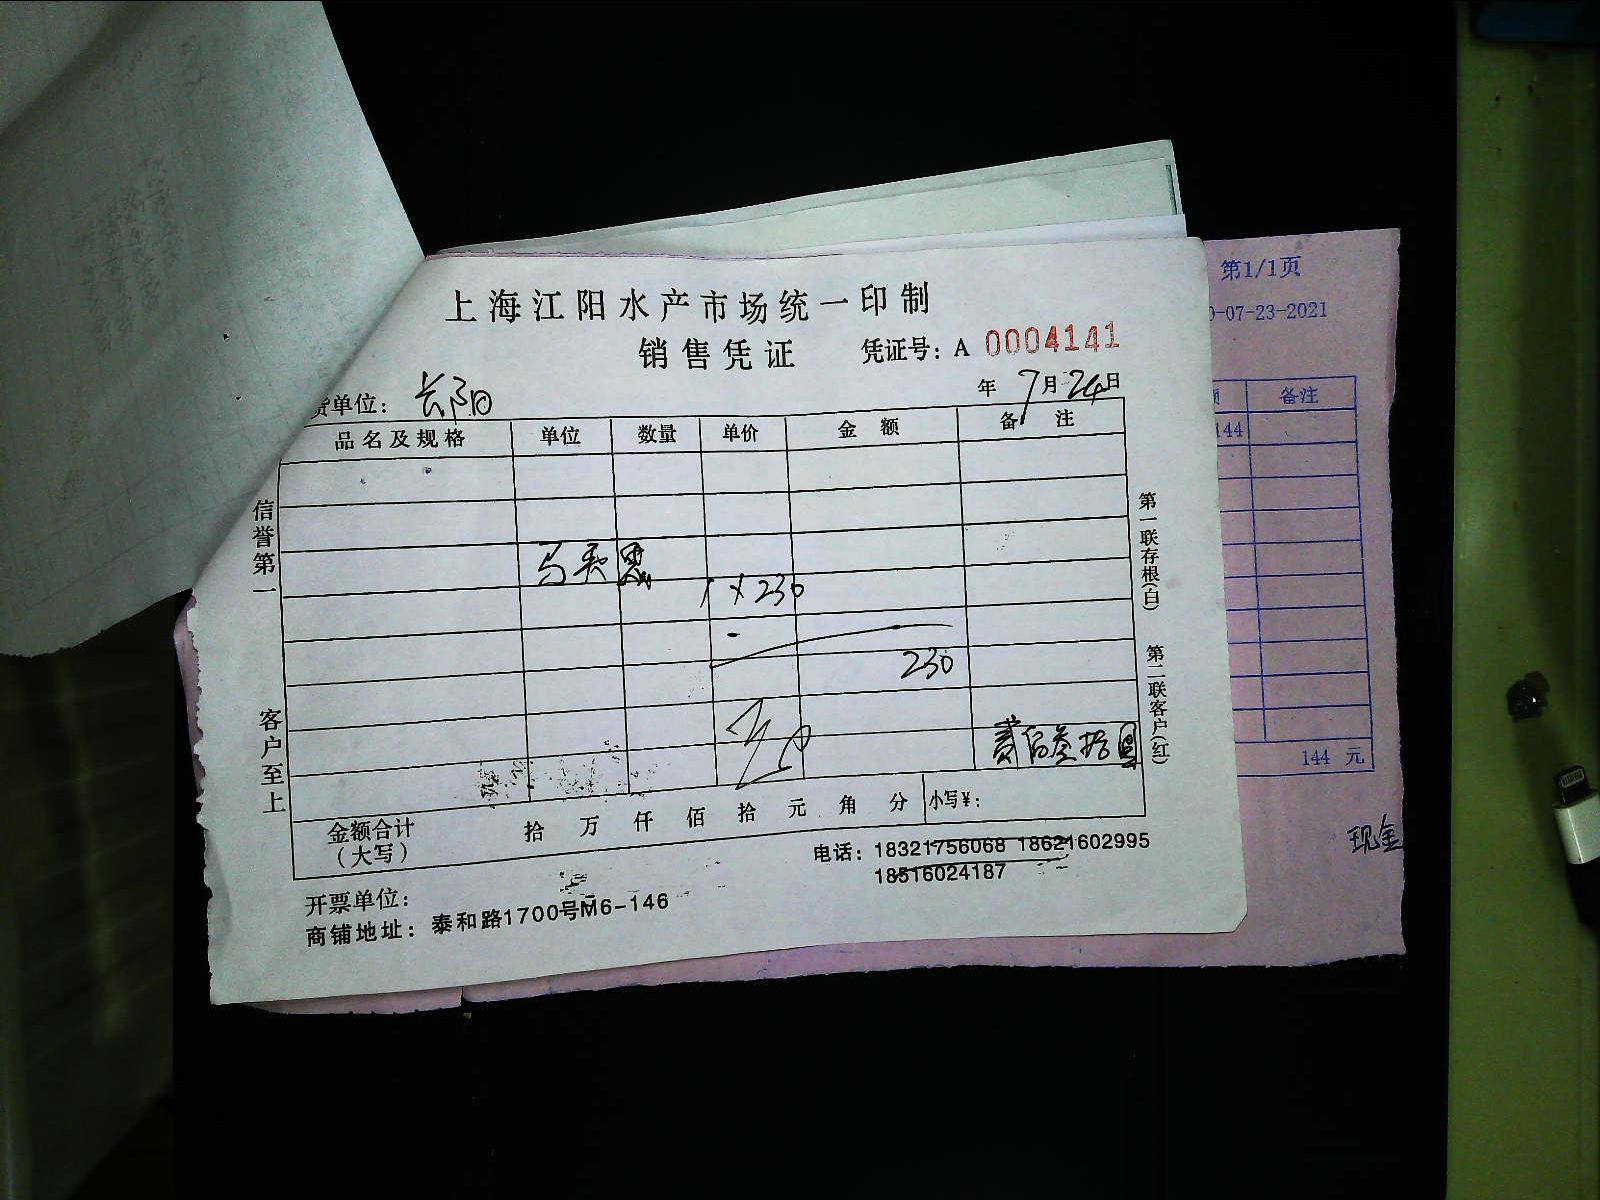 上海江阳水产市场统一印制
销售凭证 凭证号：A 0004141
货单位： 长阳 年 7月 24日
品名及规格 单位 数量 单价 金额 备注
1 × 230
230
贰佰叁拾圆
金额合计（大写） 拾 万 仟 佰 拾 元 角 分 小写￥：
电话：18321756068 18621602995
18516024187
开票单位：
商铺地址：泰和路1700号M6-146
信誉第一
客户至上
第一联存根(白)
第二联客户(红)
第1/1页
0-07-23-2021
备注
144
144 元
现金